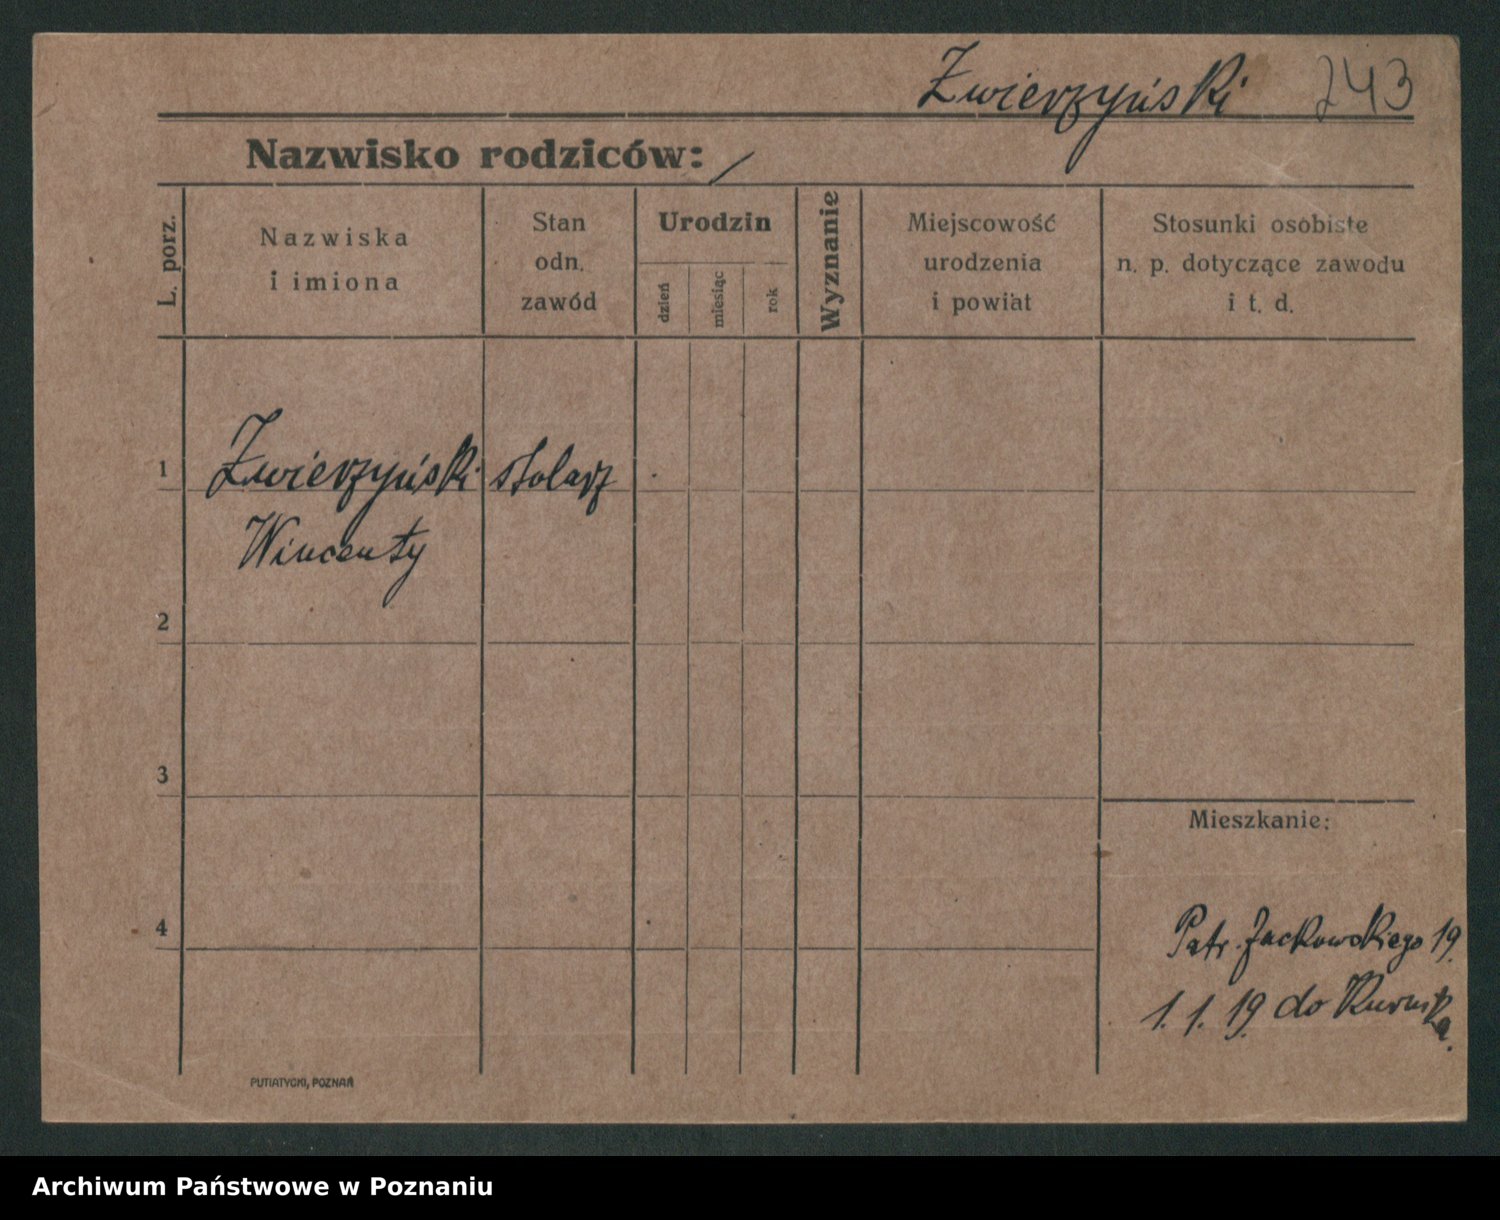 Zwierzyński 243
Nazwisko rodziców:
L. porz.
Nazwiska
i imiona
Stan
odn.
zawód
Urodzin
dzień
miesiąc
rok
Wyznanie
Miejscowość
urodzenia
i powiat
Stosunki osobiste
n. p. dotyczące zawodu
i t. d.
1
Zwierzyński stolarz
Wincenty
2
3
Mieszkanie:
4
Patr. Jackowskiego 19.
1. 1. 19. do Kurnika.
PUTIATYCKI, POZNAŃ
Archiwum Państwowe w Poznaniu